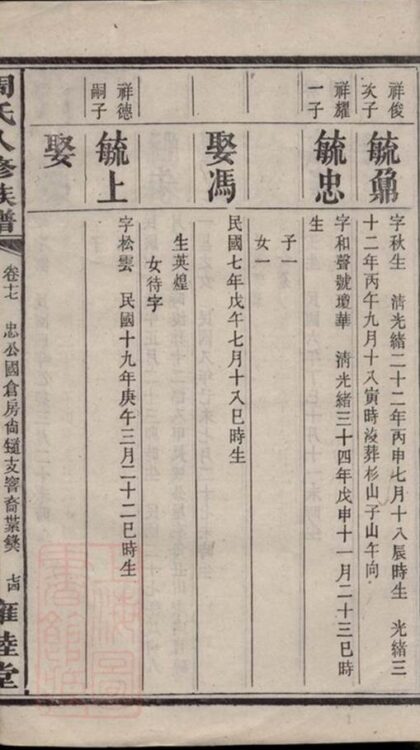 祥俊
次子
毓鼐
字秋生 清光緒二十二年丙申七月十八辰時生 光緒三
十二年丙午九月十八寅時歿葬杉山子山午向
祥耀
一子
毓忠
字和聲號瓊華 清光緒三十四年戊申十一月二十三巳時
生
子一
女一
娶馮
民國七年戊午七月十八巳時生
生英煌
女待字
祥德
嗣子
毓上
字松雲 民國十九年庚午三月二十二巳時生
娶
周氏八修族譜
卷十七
忠公國倉房尙鐩支富裔業鏷
雍睦堂